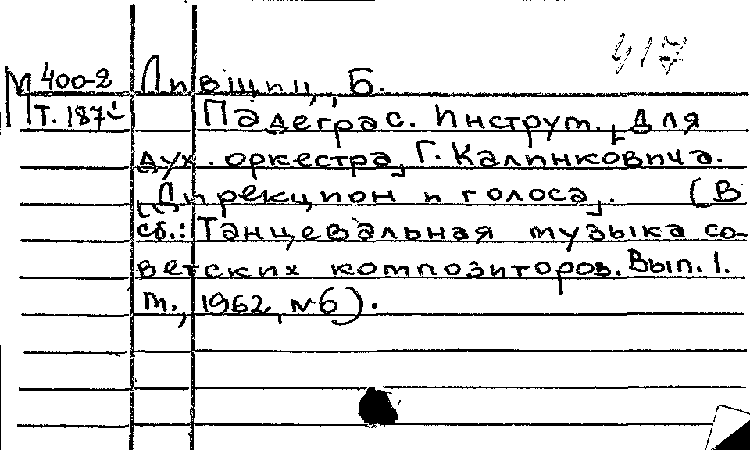 417
М 400-2 Лившиц, Б.
Т. 187 Падеграс. Инструм. [для
дух. оркестра] Г. Калинковича.
[Дирекцион и голоса]. (В
сб.: Танцевальная музыка со-
ветских композиторов. Вып. 1.
М., 1962, №6).